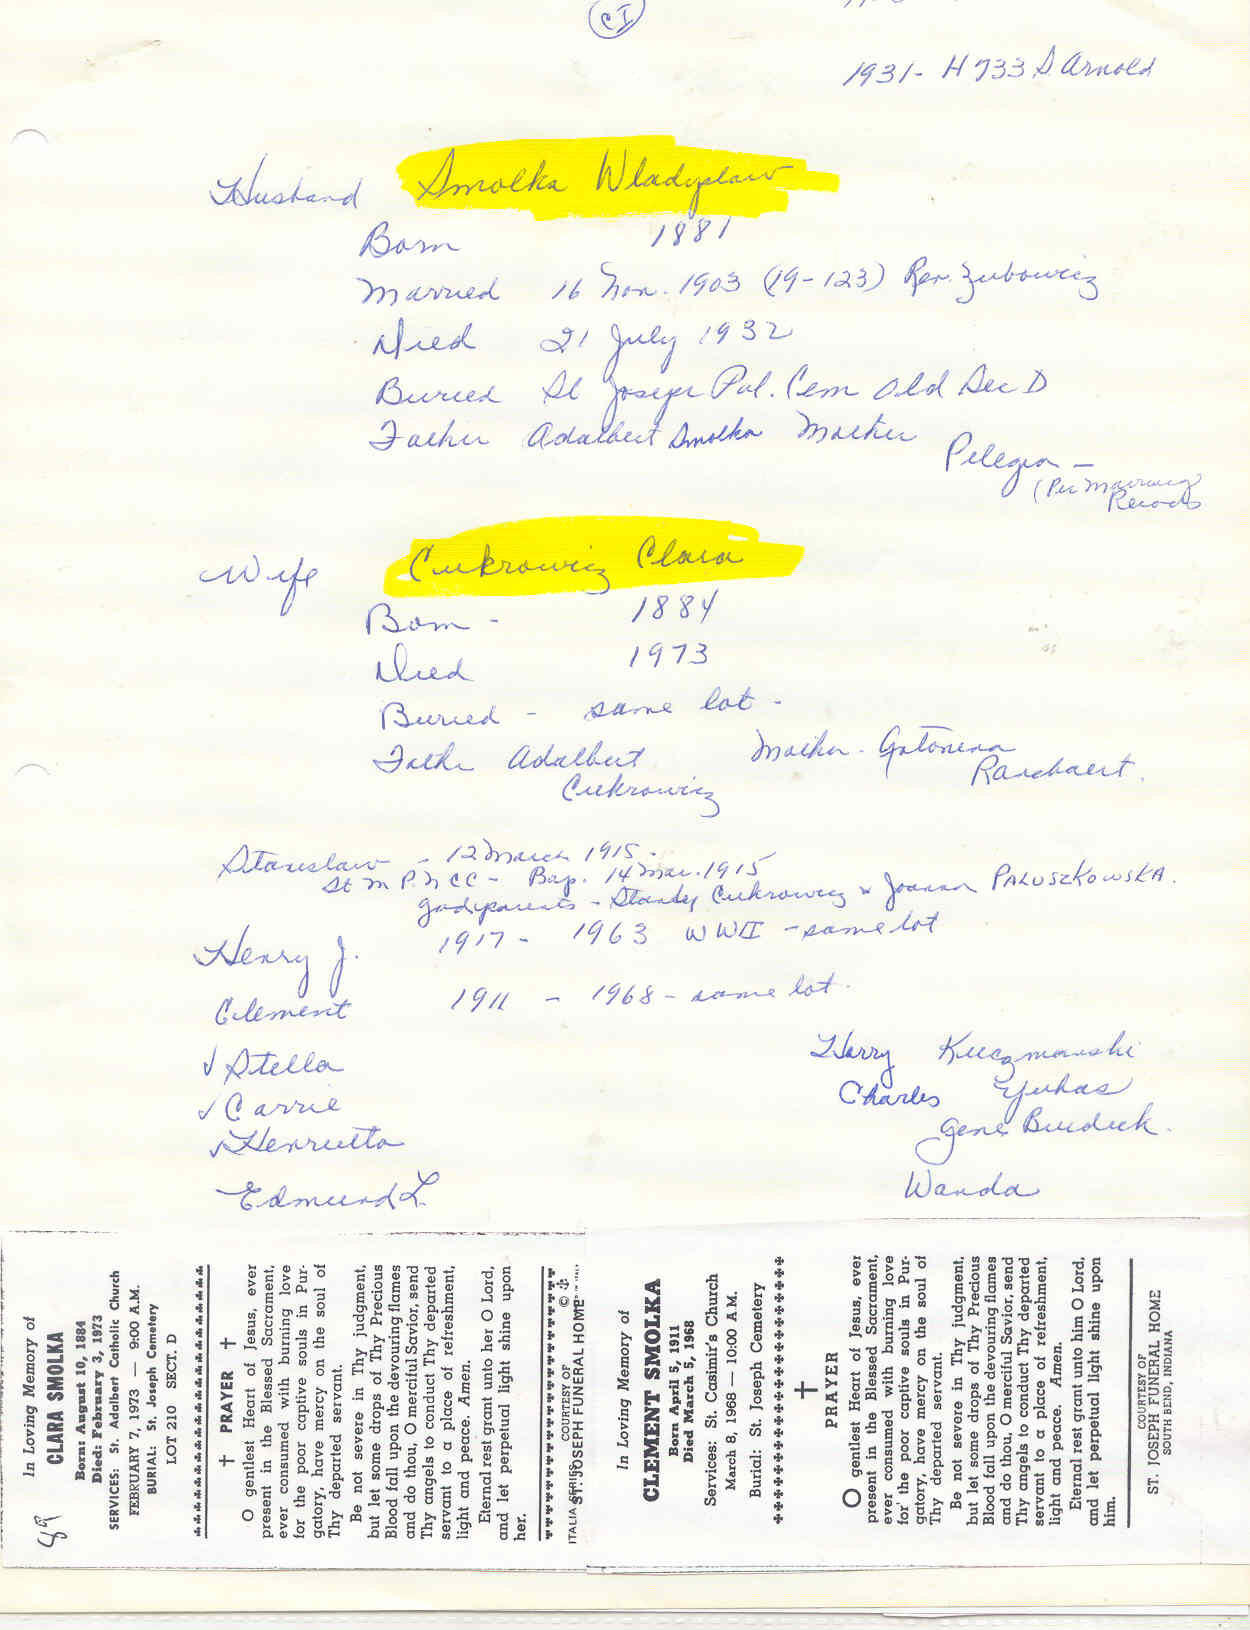 CI
1931- H 733 S. Arnold
Husband Smolka Wladyslaw
Born 1881
Married 16 Nov. 1903 (19-123) Rev. Zubowicz
Died 21 July 1932
Buried St Joseph Pol. Cem Old Sec D
Father Adalbert Smolka Mother
Pelegia -
(Per Marriage
Records
Wife Cukrowicz Clara
Born - 1884
Died 1973
Buried - same lot -
Father Adalbert Mother - Antonina
Cukrowicz
Stanislaw - 12 March 1915 -
St M P. N C C - Bap. 14 Mar. 1915
godparents - Stanley Cukrowicz & Joanna PALUSZKOWSKA.
Henry J. 1917 - 1963 WWII - same lot
Clement 1911 - 1968 - same lot -
✓ Stella Harry Kuczmanski
✓ Carrie Charles Yuhas
✓ Henrietta Gene Burdick.
Edmund L. Wanda
89
In Loving Memory of
CLARA SMOLKA
Born: August 10, 1884
Died: February 3, 1973
SERVICES: St. Adalbert Catholic Church
FEBRUARY 7, 1973 — 9:00 A.M.
BURIAL: St. Joseph Cemetery
LOT 210 SECT. D
† PRAYER †
O gentlest Heart of Jesus, ever
present in the Blessed Sacrament,
ever consumed with burning love
for the poor captive souls in Pur-
gatory, have mercy on the soul of
Thy departed servant.
Be not severe in Thy judgment,
but let some drops of Thy Precious
Blood fall upon the devouring flames
and do thou, O merciful Savior, send
Thy angels to conduct Thy departed
servant to a place of refreshment,
light and peace. Amen.
Eternal rest grant unto her O Lord,
and let perpetual light shine upon
her.
COURTESY OF
ST. JOSEPH FUNERAL HOME
ITALIA SERIES
In Loving Memory of
CLEMENT SMOLKA
Born April 5, 1911
Died March 5, 1968
Services: St. Casimir's Church
March 8, 1968 — 10:00 A M.
Burial: St. Joseph Cemetery
†
PRAYER
O gentlest Heart of Jesus, ever
present in the Blessed Sacrament,
ever consumed with burning love
for the poor captive souls in Pur-
gatory, have mercy on the soul of
Thy departed servant.
Be not severe in Thy judgment,
but let some drops of Thy Precious
Blood fall upon the devouring flames
and do thou, O merciful Savior, send
Thy angels to conduct Thy departed
servant to a place of refreshment,
light and peace. Amen.
Eternal rest grant unto him O Lord,
and let perpetual light shine upon
him.
COURTESY OF
ST. JOSEPH FUNERAL HOME
SOUTH BEND, INDIANA